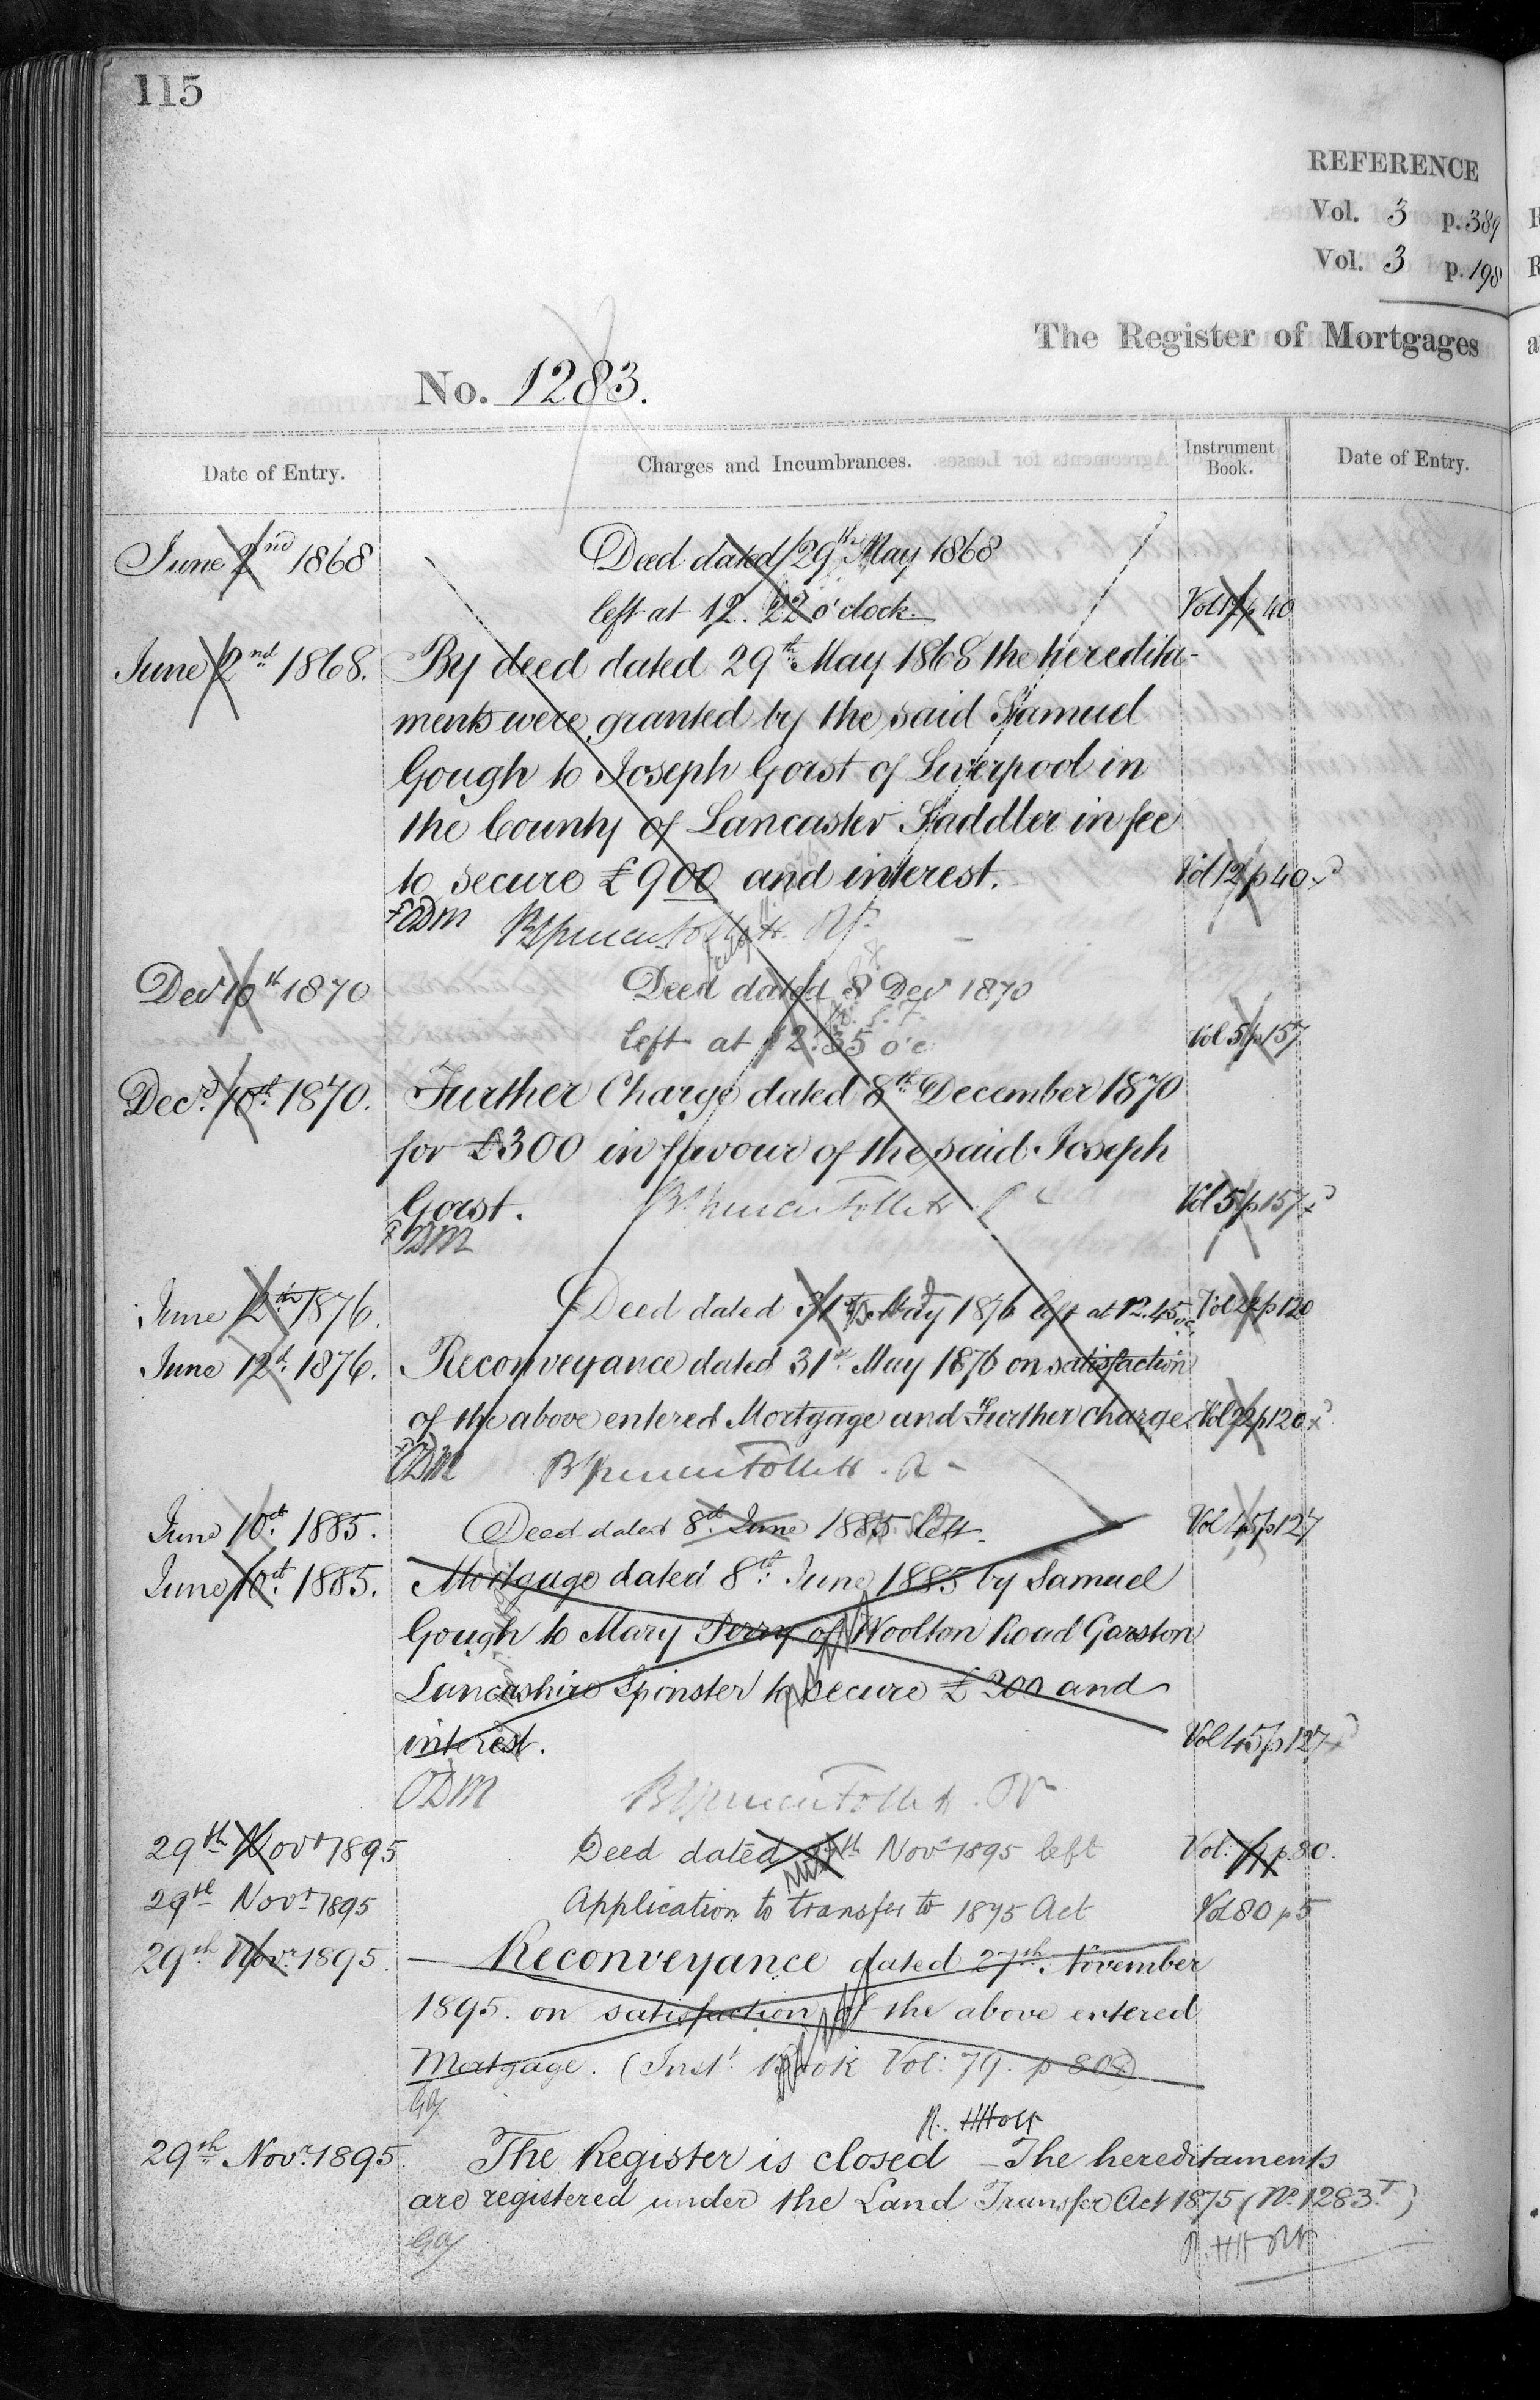 115
REFERENCE
Vol. 3 p. 389
Vol. 3 p. 198
The Register of Mortgages
No. 1283.
Date of Entry. Charges and Incumbrances. Instrument Book. Date of Entry.
June 2nd 1868 Deed dated 29th May 1868
left at 12.22 o'clock. Vol 12 p 40
June 2nd 1868. By deed dated 29th May 1868 the heredita-
ments were granted by the said Samuel
Gough to Joseph Gorst of Liverpool in
the County of Lancaster Saddler in fee
to secure £900 and interest. Vol 12 p 40
Dec 10th 1870 Deed dated 8 Decr 1870
left at 12.35 o'c Vol 5 p 157
Decr. 10th 1870. Further Charge dated 8th December 1870
for £300 in favour of the said Joseph
Gorst. Vol 5 p 157
June 12th 1876. Deed dated 31st May 1876 left at 12.45 Vol 22 p 120
June 12th 1876. Reconveyance dated 31st May 1876 on satisfaction
of the above entered Mortgage and Further charge Vol 22 p 120
June 10th 1885. Deed dated 8th June 1885 left Vol 45 p 127
June 10th 1885. Mortgage dated 8th June 1885 by Samuel
Gough to Mary Perry of Woolton Road Garston
Lancashire Spinster to secure £300 and
interest. Vol 45 p 127
29th Novr 1895 Deed dated Novr 1895 left Vol: 79 p 80.
29th Novr 1895 Application to transfer to 1875 Act Vol 80 p 5
29th Novr. 1895. Reconveyance dated 27th November
1895. on satisfaction of the above entered
Mortgage. (Inst: Book Vol: 79. p 80)
R. H Holt
29th Novr. 1895. The Register is closed – The hereditaments
are registered under the Land Transfer Act 1875 (No. 1283 T)
R. H Holt